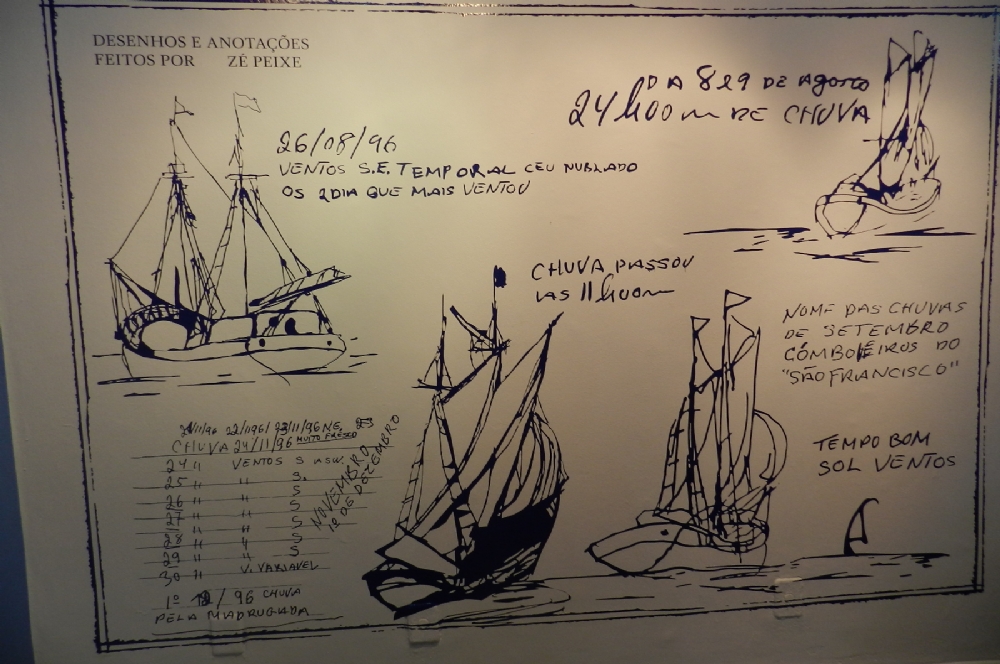 DESENHOS E ANOTAÇÕES
FEITOS POR ZÉ PEIXE
26/08/96
VENTOS S.E. TEMPORAL CEU NUBLADO
OS 2DIA QUE MAIS VENTOU
DA 8 29 DE AGOSTO
24h00m DE CHUVA
CHUVA PASSOU
11h00m
NOME DAS CHUVAS
DE SETEMBRO
COMBOEIROS DO
"SÃO FRANCISCO"
TEMPO BOM
SOL VENTOS
21/11/96 22/11/96/ 23/11/96 NE.
CHUVA 24/11/96 MUITO FRESCO
24 " VENTOS S
25 " " S.
26 " " S
27 " " S
28 " " S
29 " " S
30 " V. VARIAVEL
1º 12/96 CHUVA
PELA MADRUGADA
NOVEMBRO
1º DE DEZEMBRO